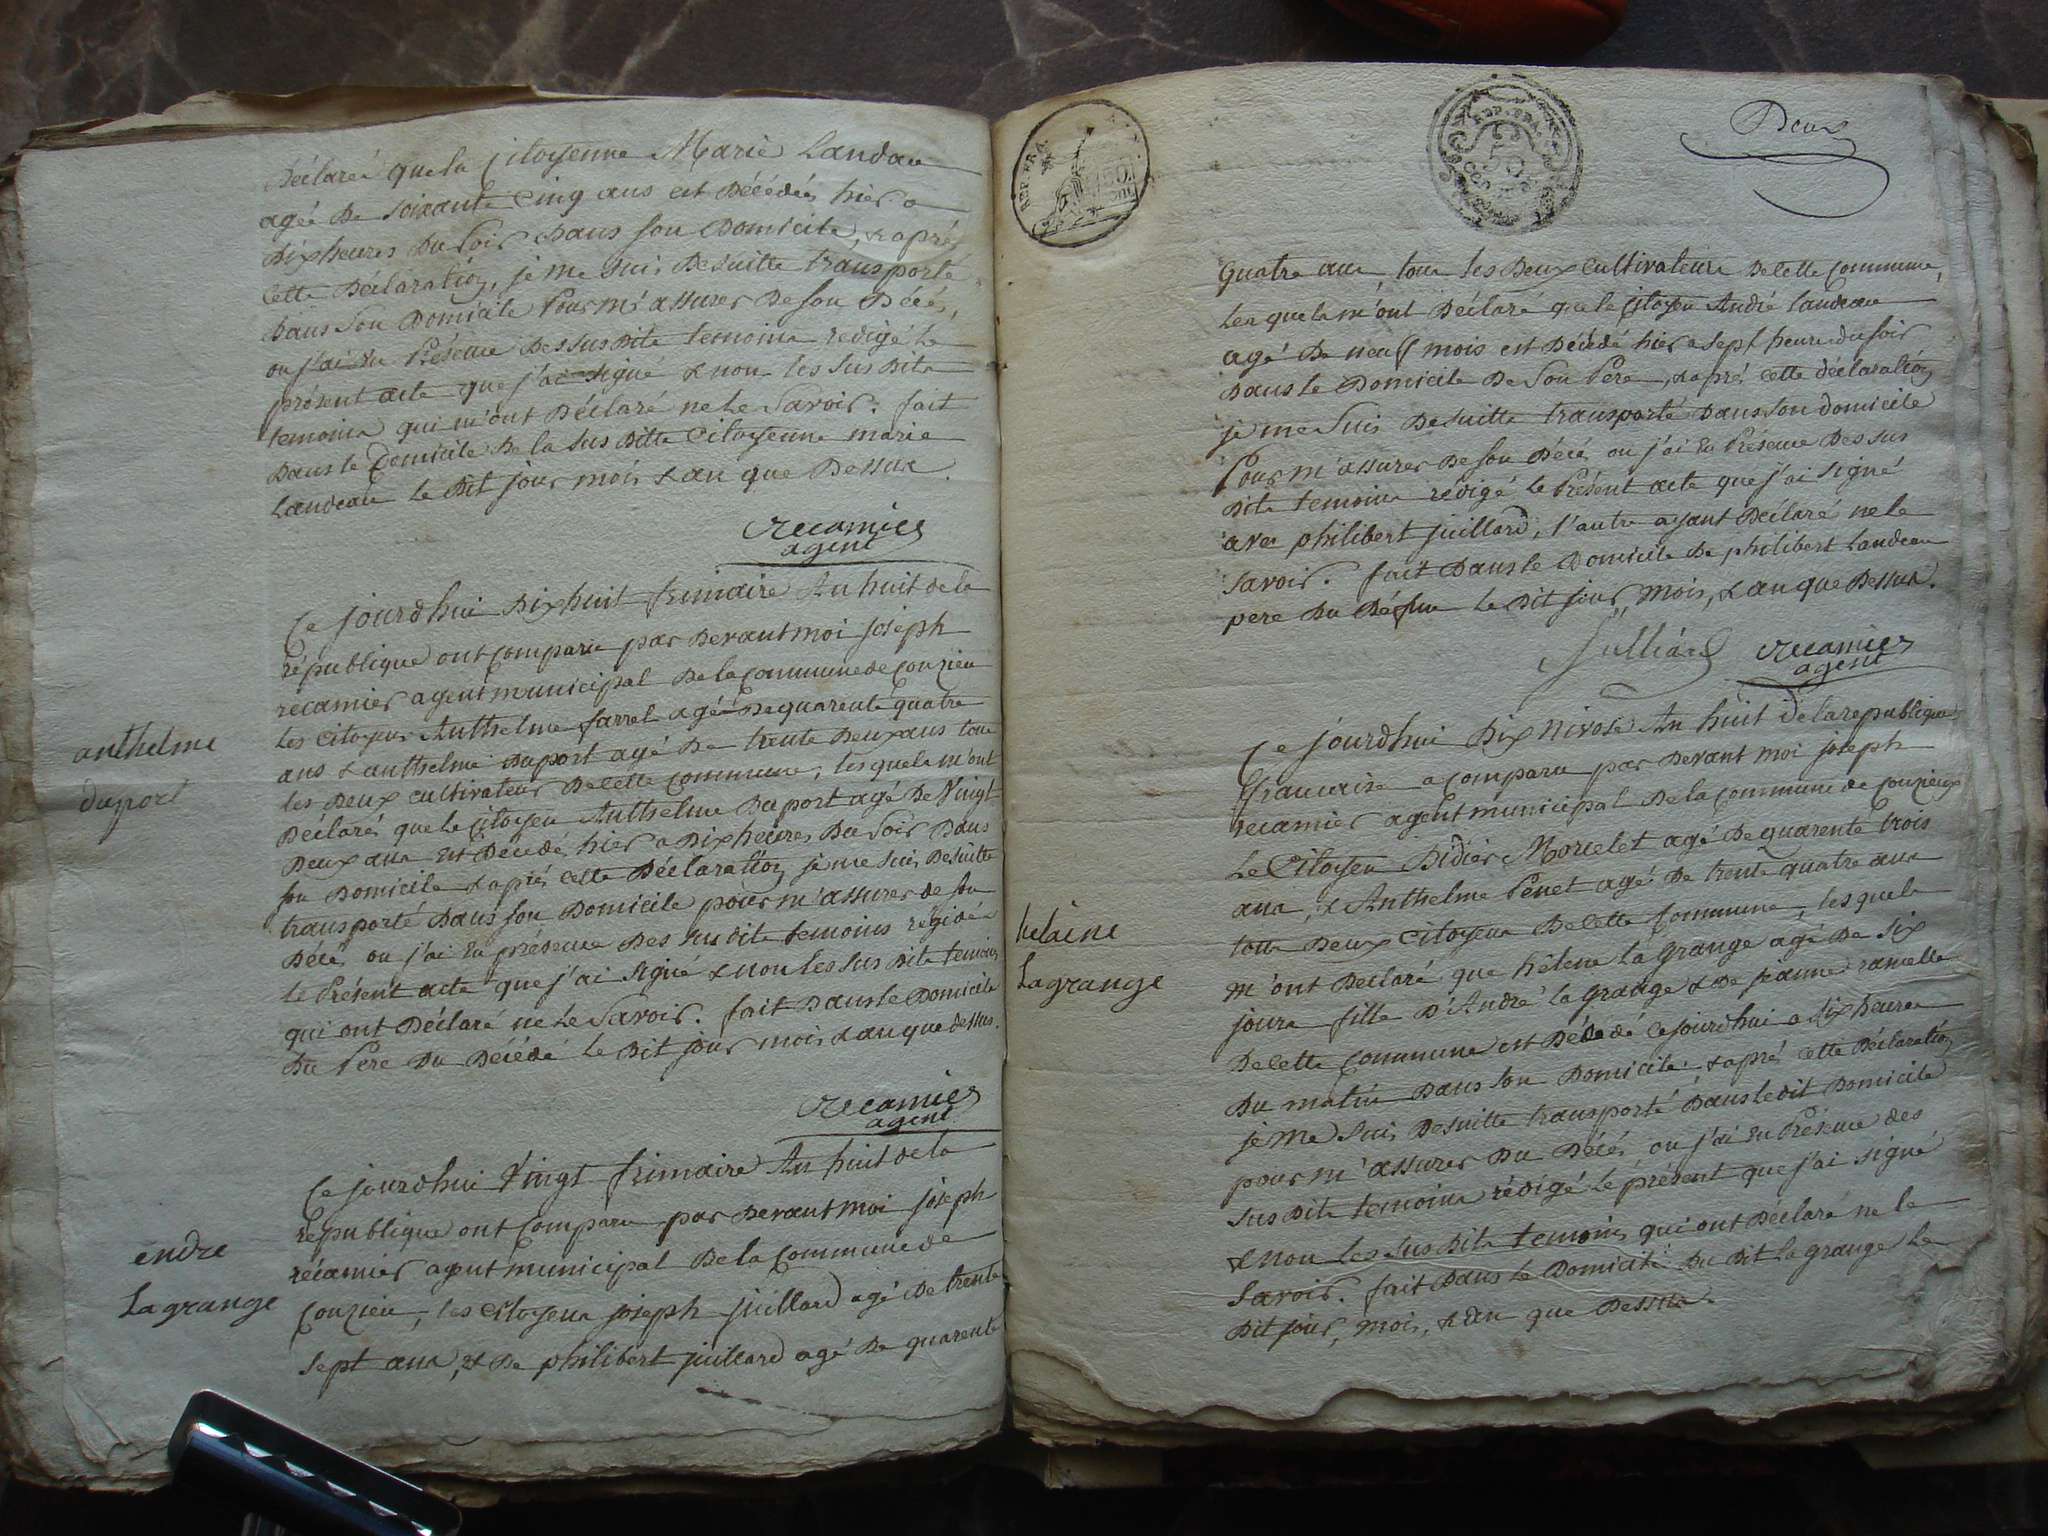 déclaré que la Citoyenne Marie Landau
agée de soixante Cinq ans est décédée hier a
dix heures du soir dans son domicile, & après
cette déclaration, je me suis desuitte transporté
dans son domicile pour m'assurer de son décés,
ou j'ai en présence des susdits temoins redigé le
présent acte que j'ai signé & non les susdits
temoins qui m'ont déclaré ne le savoir. fait
dans le domicile de la susditte Citoyenne marie
Landeau le dit jour mois & an que dessus
recamier
agent
Ce jourdhui dix huit frimaire An huit de la
république ont comparu par devant moi joseph
recamier agent municipal de la commune de Couzieu
les citoyens Anthelme farret agé de quarente quatre
ans & anthelme duport agé de trente deux ans tous
les deux cultivateurs de cette commune, lesquels m'ont
déclarés que le citoyen Anthelme Duport agé de Vingt
deux ans est décédé hier a dix heures du soir dans
son domicile & après cette déclaration je me suis desuitte
transporté dans son domicile pour m'assurer de son
décés ou j'ai en présence des susdits temoins régidée
le présent acte que j'ai signé & non les susdits temoins
qui ont déclaré ne le savoir. fait dans le domicile
du Pere du décédé le dit jour mois & an que dessus.
recamier
agent
Ce jourdhui Vingt frimaire An huit de la
republique ont comparu par devant moi joseph
récamier agent municipal de la commune de
Couzieu, les citoyens joseph juillard agé de trente
sept ans, & de philibert juillard agé de quarente
anthelme
duport
endre
Lagrange
REP. FRA.
Deux
quatre ans tous les deux cultivateurs de cette commune,
lesquels m'ont déclaré que le citoyen André Landeau
agé de neuf mois est décédé hier a sept heures du soir
dans le domicile de son Pere, & après cette déclaration
je me suis desuitte transporté dans son domicile
Pour m'assurer de son décés ou j'ai en Présence des sus
dits temoins rédigé le Présent acte que j'ai signé
avec philibert juillard, l'autre ayant déclaré ne le
savoir. fait dans le domicile de philibert Landeau
pere du défun le dit jour, mois, & an que dessus.
Julliard recamier
agent
Ce jourdhui dix Nivose An huit de la republique
francaise a comparu par devant moi joseph
recamier agent municipal de la commune de Couzieux
Le Citoyen Didier Morcelet agé de quarente trois
ans, & Anthelme Penet agé de trente quatre ans
tous deux citoyens de cette commune, lesquels
m'ont déclaré que hélene la Grange agé de six
jours fille d'André la Grange & de jeanne ramelle
de cette commune est décédé ce jourdhui a dix heures
du matin dans son domicile & après cette déclaration
je me suis desuitte transporté dans le dit domicile
pour m'assurer du décés ou j'ai en Présence des
susdits temoins rédigé le présent que j'ai signé
& non les susdits temoins qui ont déclaré ne le
savoir. fait dans le domicile du dit la grange le
dit jour, mois, & an que dessus.
helaine
Lagrange